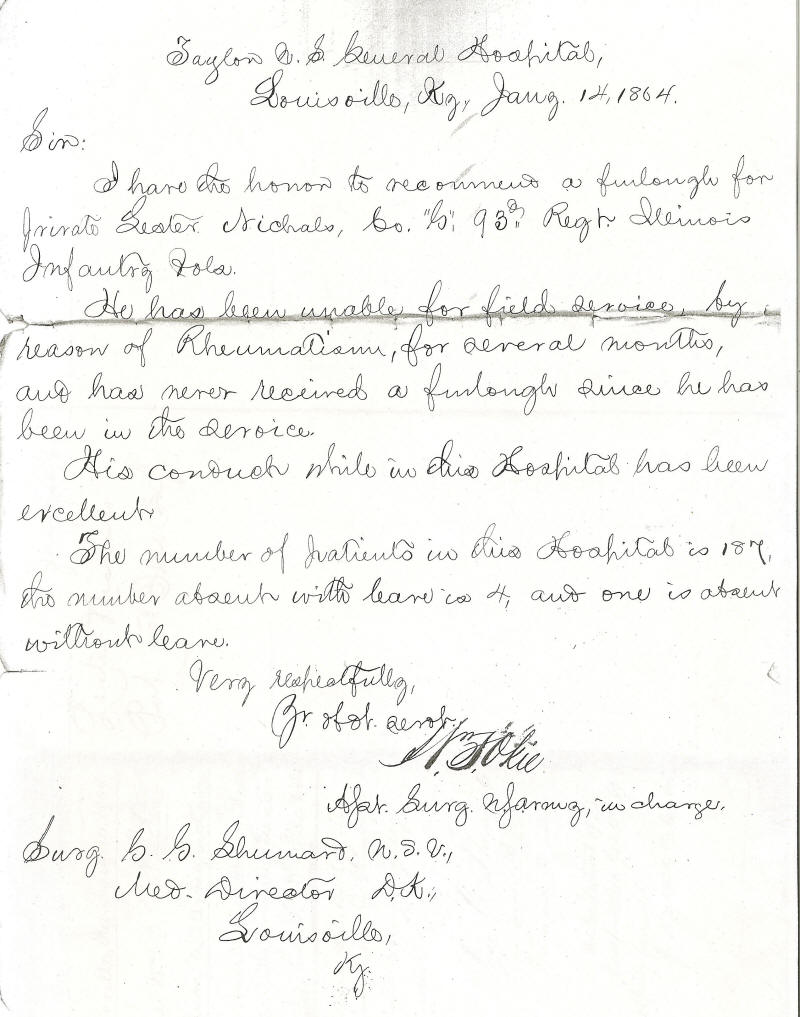 Taylor U. S. General Hospital,
Louisville, Ky., Jany. 14, 1864.
Sir:
I have the honor to recommend a furlough for
Private Lester Nichols, Co. "G", 93d. Regt. Illinois
Infantry Vols.
He has been unable for field service, by
reason of Rheumatism, for several months,
and has never received a furlough since he has
been in the service.
His conduct while in this Hospital has been
excellent.
The number of patients in this Hospital is 187,
the number absent with leave is 4, and one is absent
without leave.
Very respectfully,
Yr. obdt. servt.
Asst. Surg. U.S. army, in charge.
Surg. G. G. Shumard, U.S.V.,
Med. Director D.K.,
Louisville,
Ky.